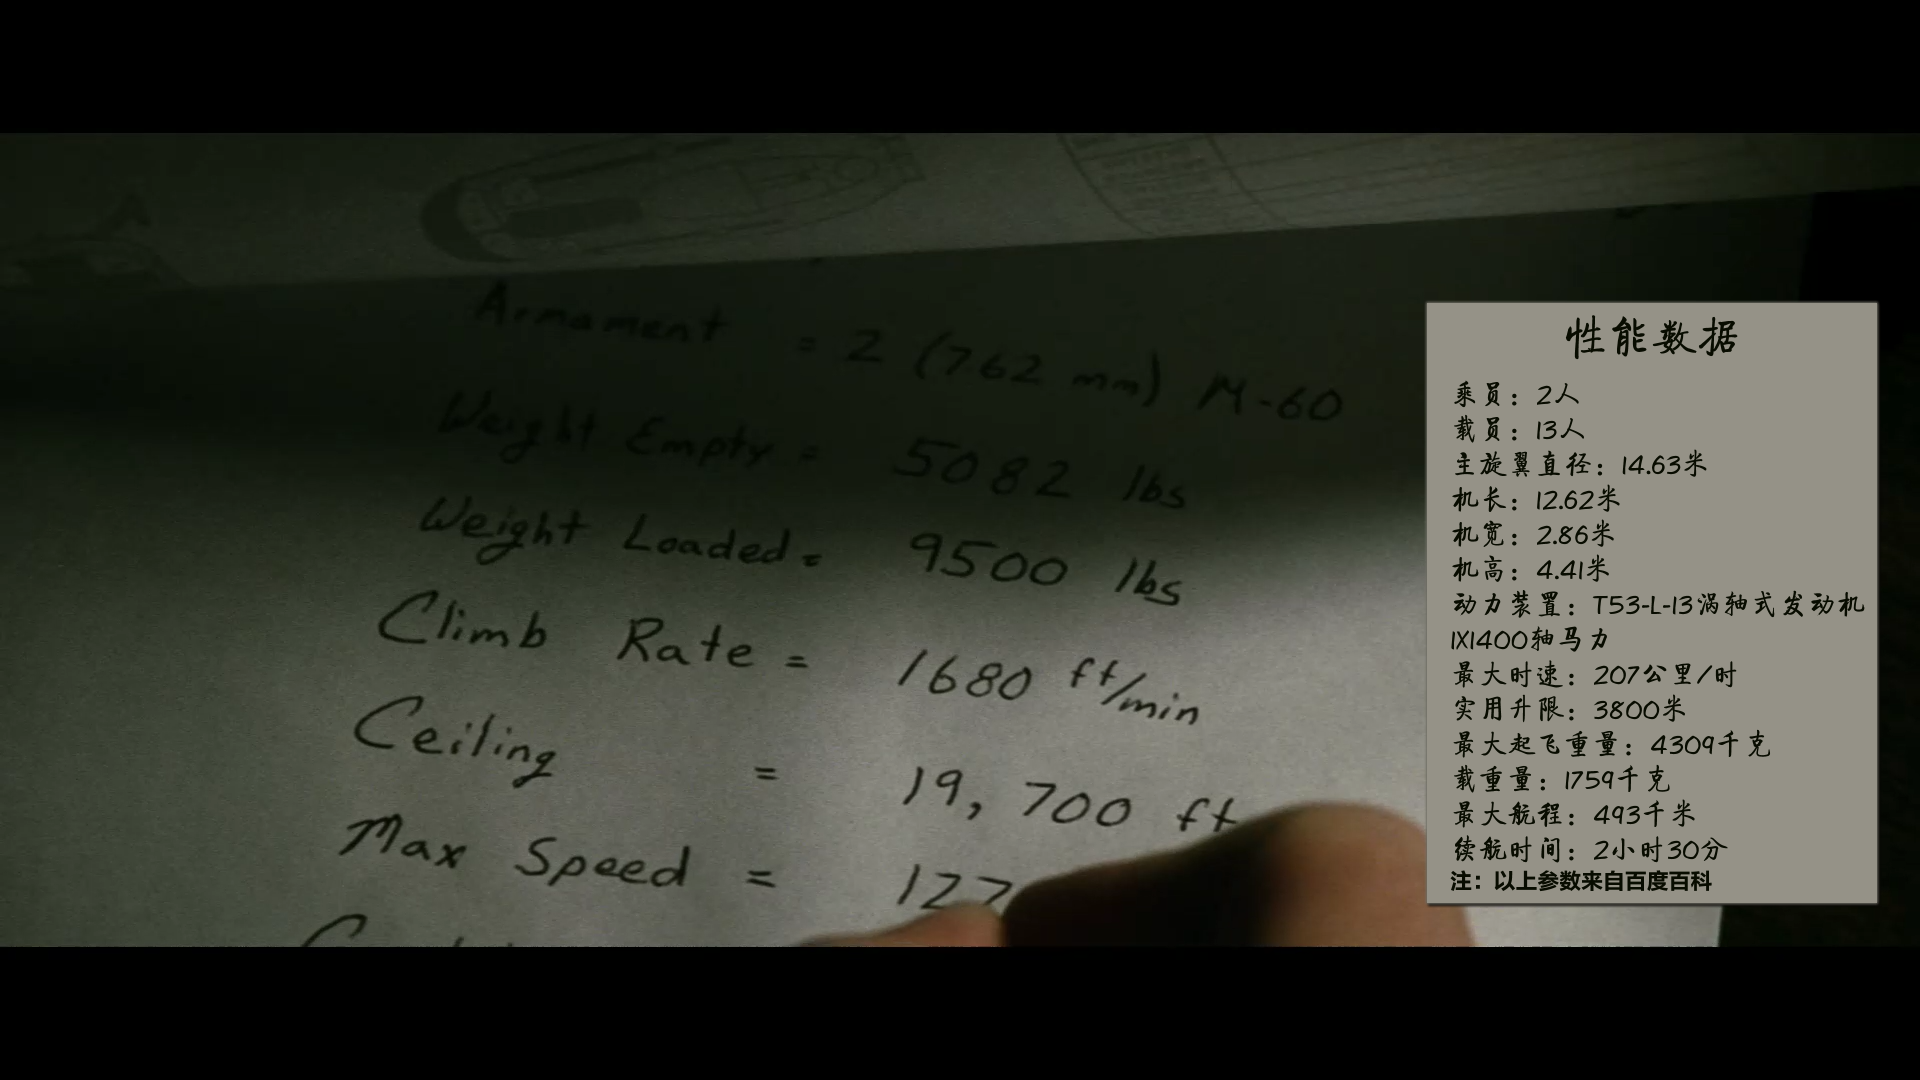 Armament = 2 (7.62 mm) M-60
Weight Empty = 5082 lbs
Weight Loaded = 9500 lbs
Climb Rate = 1680 ft/min
Ceiling = 19,700 ft
Max Speed = 127
性能数据
乘员：2人
载员：13人
主旋翼直径：14.63米
机长：12.62米
机宽：2.86米
机高：4.41米
动力装置：T53-L-13涡轴式发动机
1X1400轴马力
最大时速：207公里/时
实用升限：3800米
最大起飞重量：4309千克
载重量：1759千克
最大航程：493千米
续航时间：2小时30分
注：以上参数来自百度百科